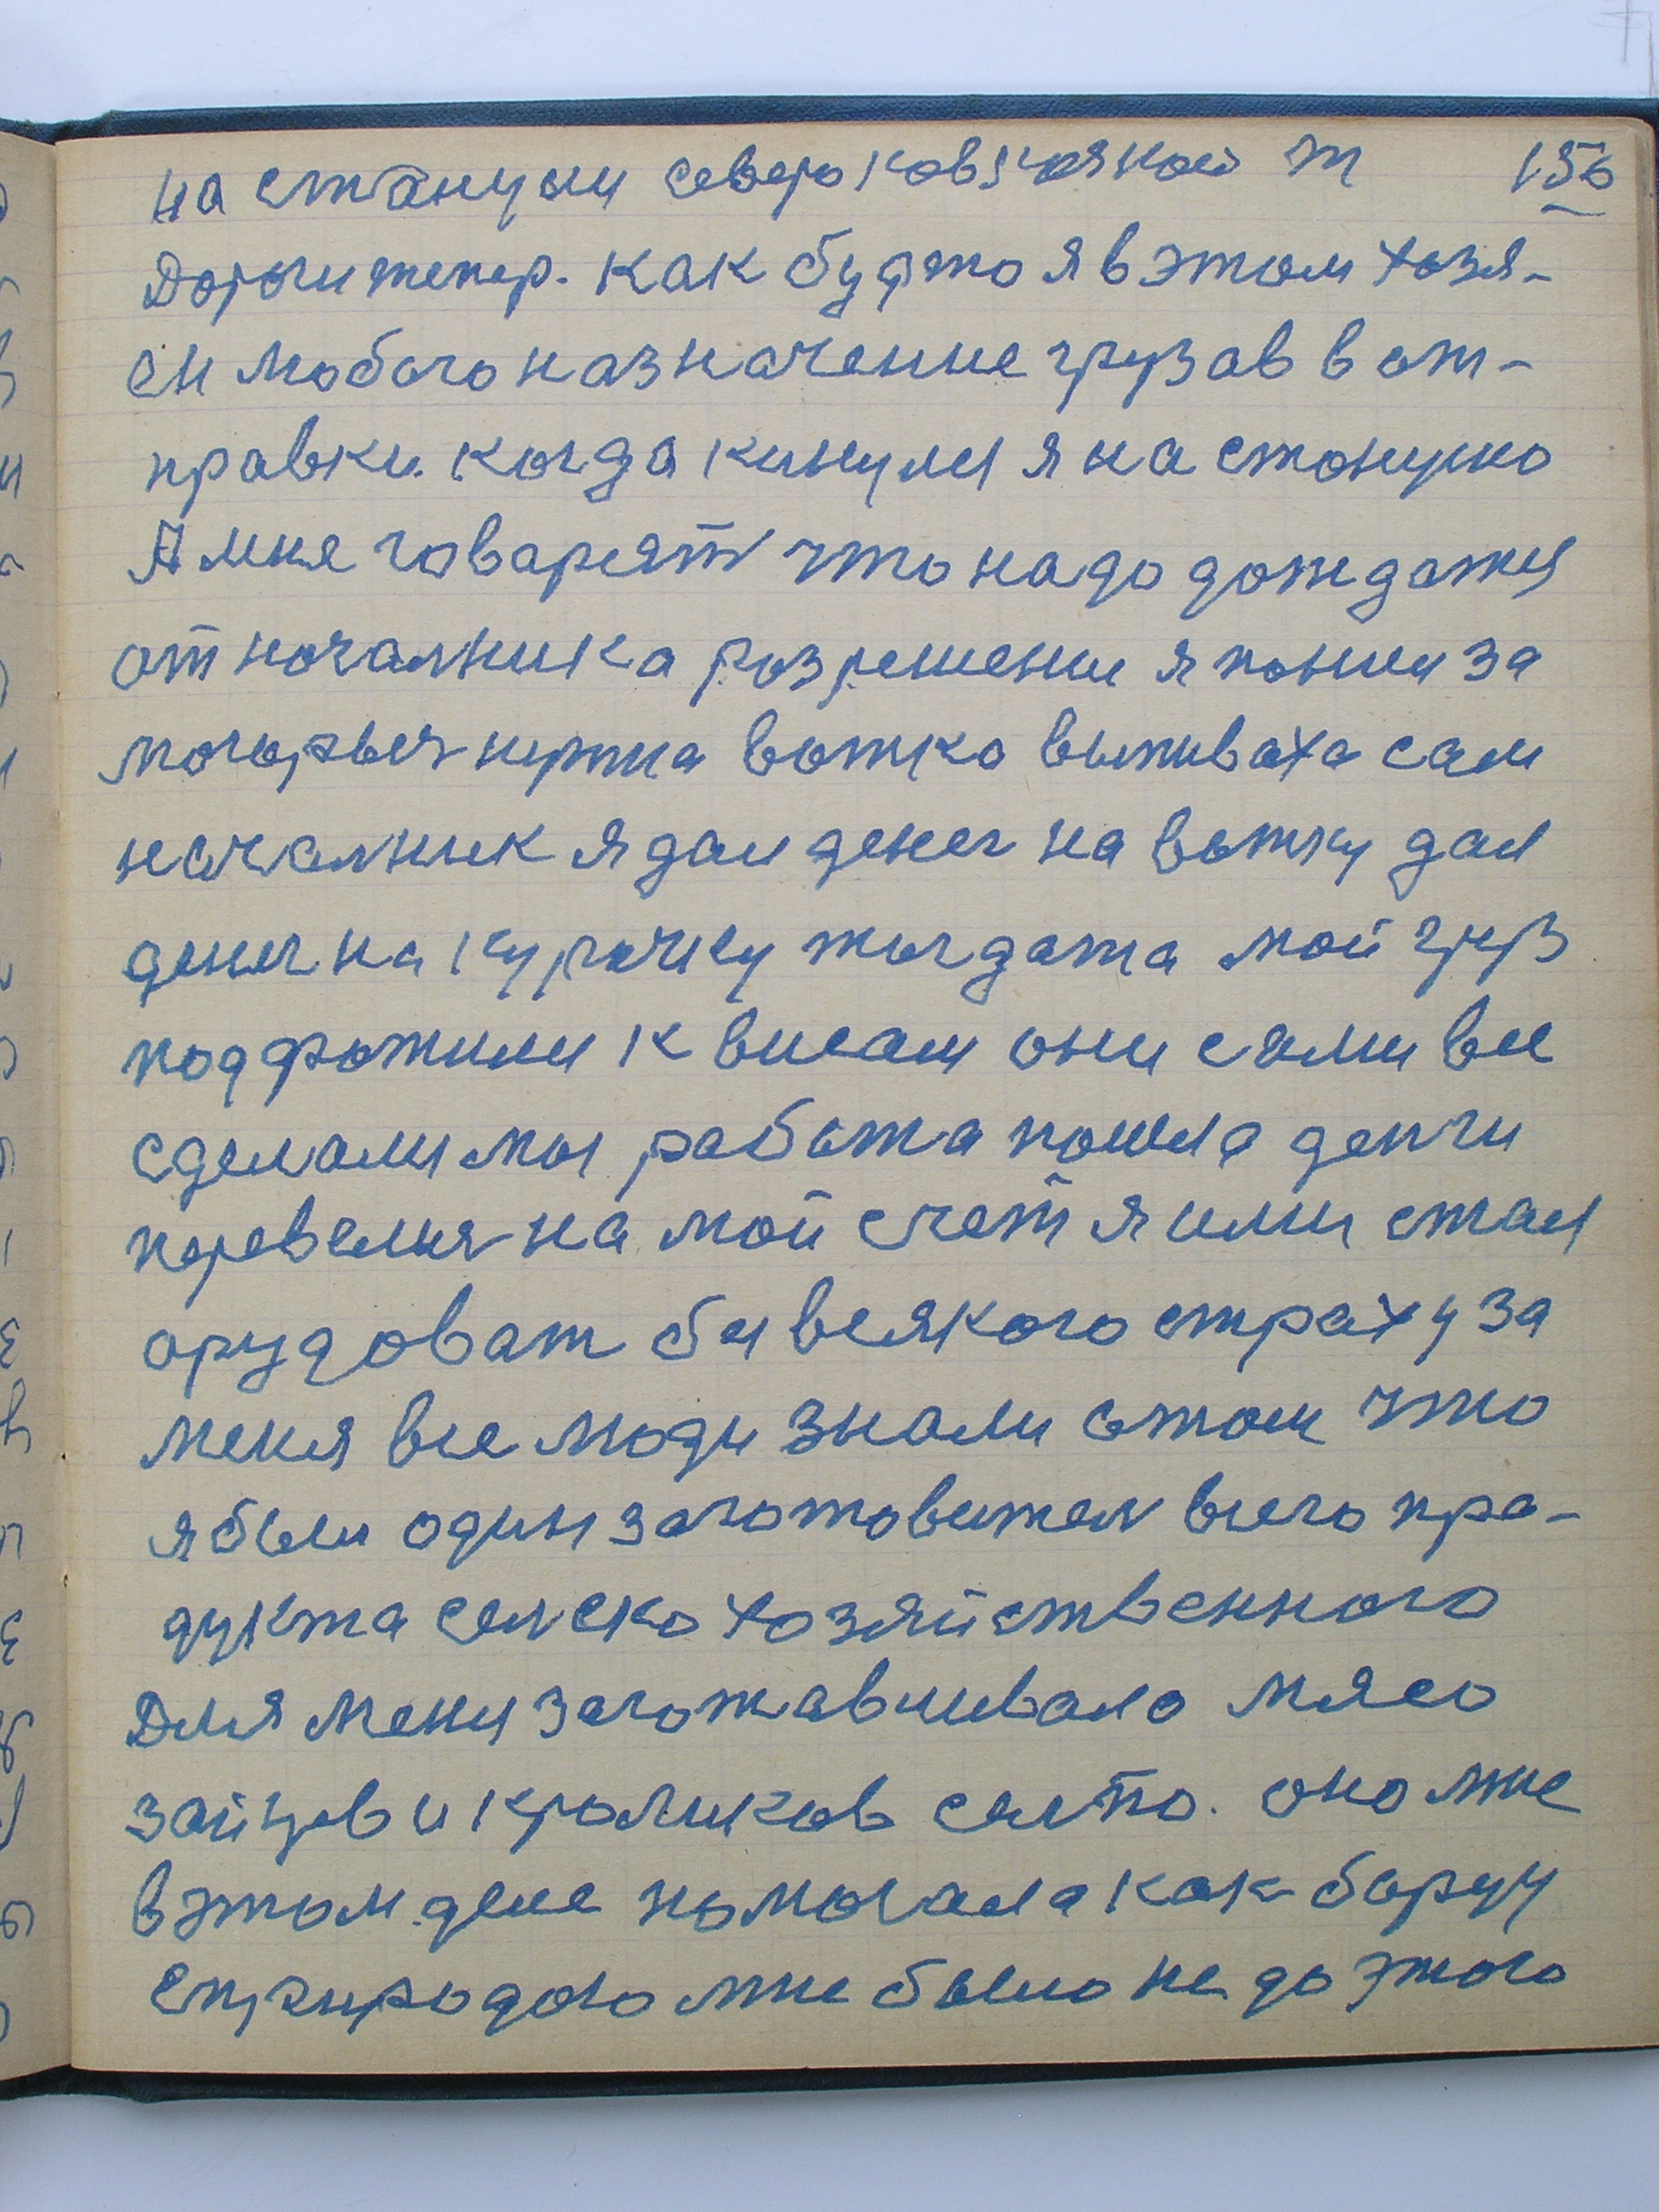 на станции северо кавказкой т 156
Дороги тепер. как будто я в этом хозя-
ен любого назначение грузов в от-
правки. когда кинулся я на станцию
А мня говарят что надо дождатся
от начальника разрешени я понил за
могорыч нужна вотка выпиваха сам
начальник я дал денег на вотку дал
денег на курочку тогдата мой груз
подфотили к висам они сами все
сделали мы работа пошла денги
перевелися на мой счет я ими стал
орудоват биз всякого страху за
меня все люди знали отом что
я был один заготовител всего пра-
дукта селско хозяйственного
Для меня заготавливало мясо
зайцев и кроликов селпо. оно мне
в этом деле помогала как борцу
с природою мне было не до этого